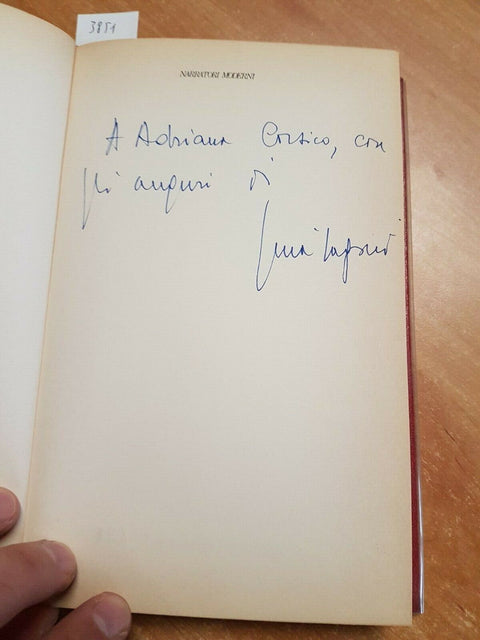 3851
NARRATORI MODERNI
A Adriana Corsico, con
gli auguri di